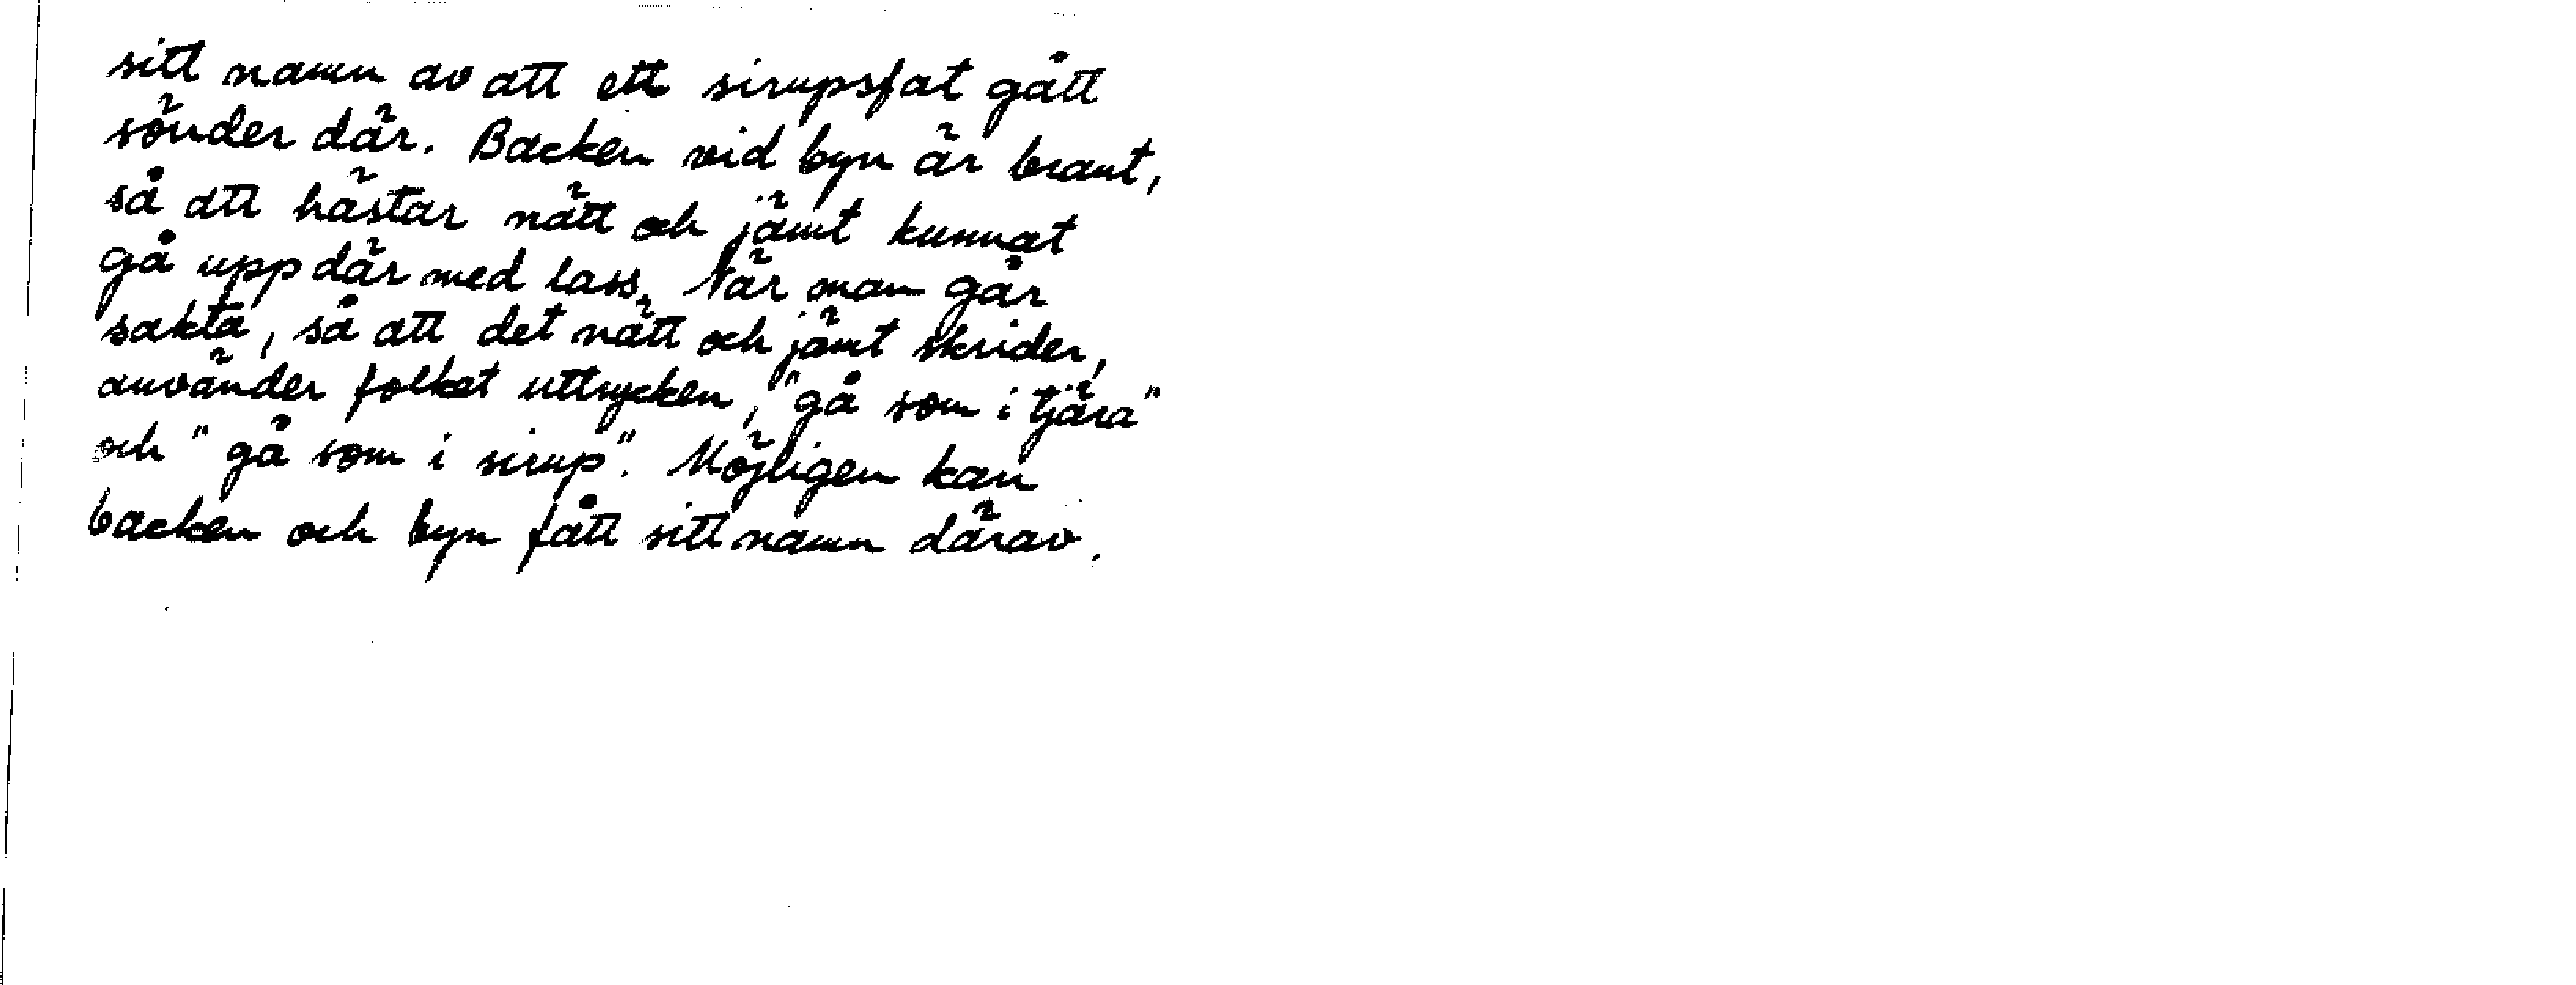 sitt namn av att ett sirupsfat gått
sönder där. Backen vid byn är brant,
så att hästar nätt och jämt kunnat
gå upp där med lass. När man går
sakta, så att det nätt och jämt skrider,
använder folket uttrycken, "gå som i tjära"
och "gå som i sirup". Möjligen kan
backen och byn fått sitt namn därav.